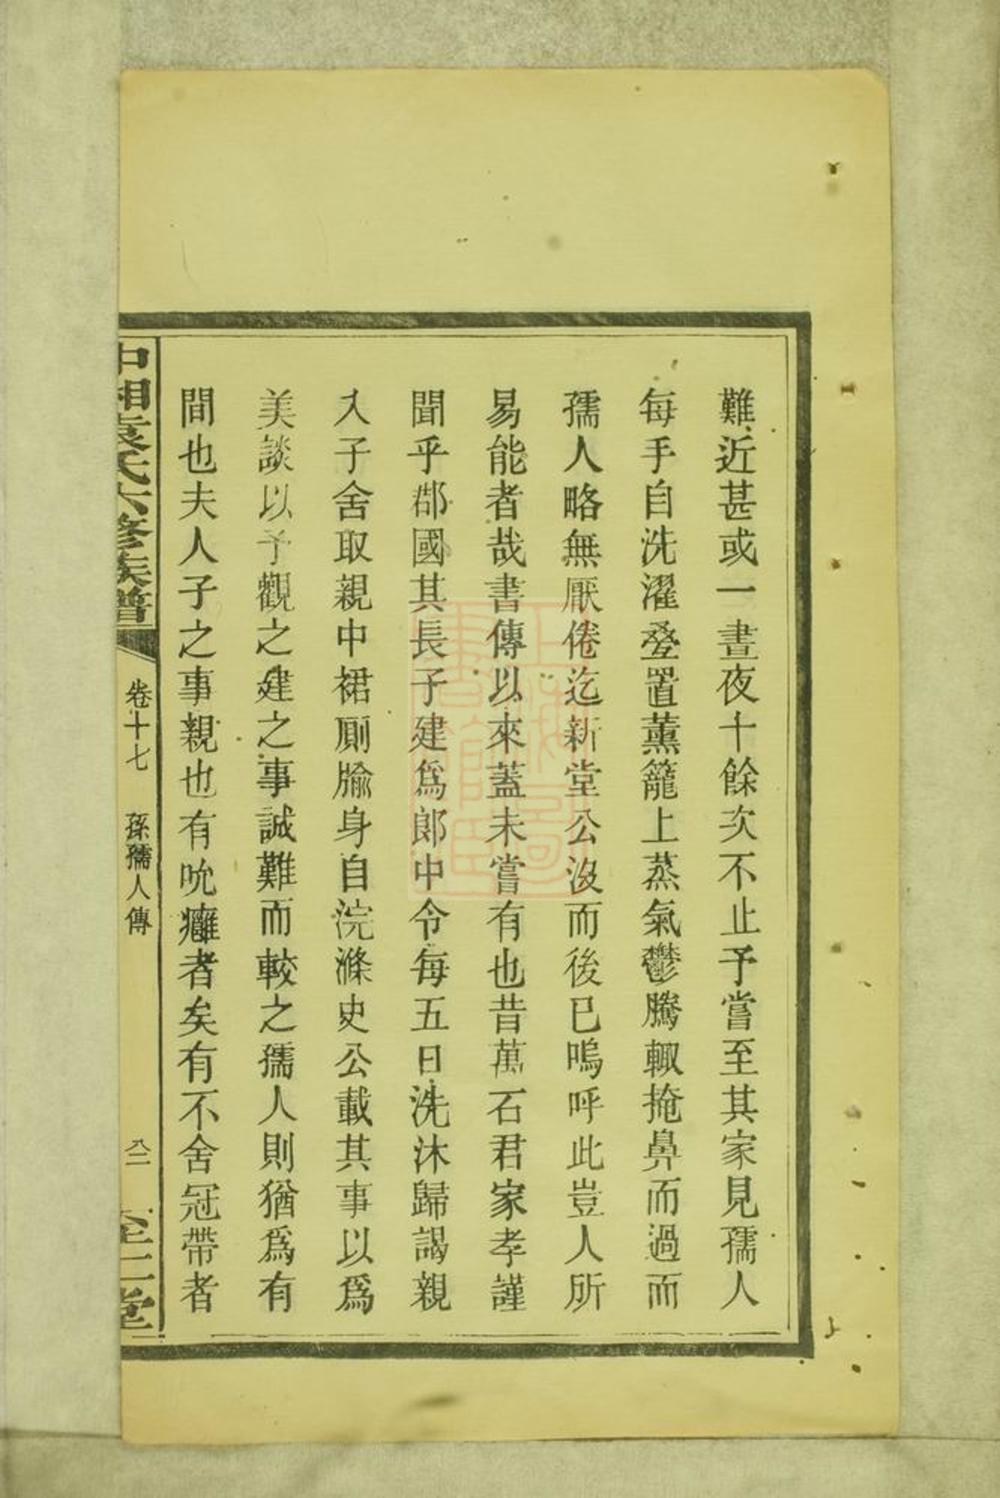 難近甚或一晝夜十餘次不止予嘗至其家見孺人
每手自洗濯疊置薰籠上蒸氣鬱騰輙掩鼻而過而
孺人略無厭倦迄新堂公沒而後已嗚呼此豈人所
易能者哉書傳以來蓋未嘗有也昔萬石君家孝謹
聞乎郡國其長子建爲郎中令每五日洗沐歸謁親
入子舍取親中裙厠牏身自浣滌史公載其事以爲
美談以予觀之建之事誠難而較之孺人則猶爲有
間也夫人子之事親也有吮癰者矣有不舍冠帶者
中湘袁氏六修族譜
卷十七 孫孺人傳
八二 至仁堂